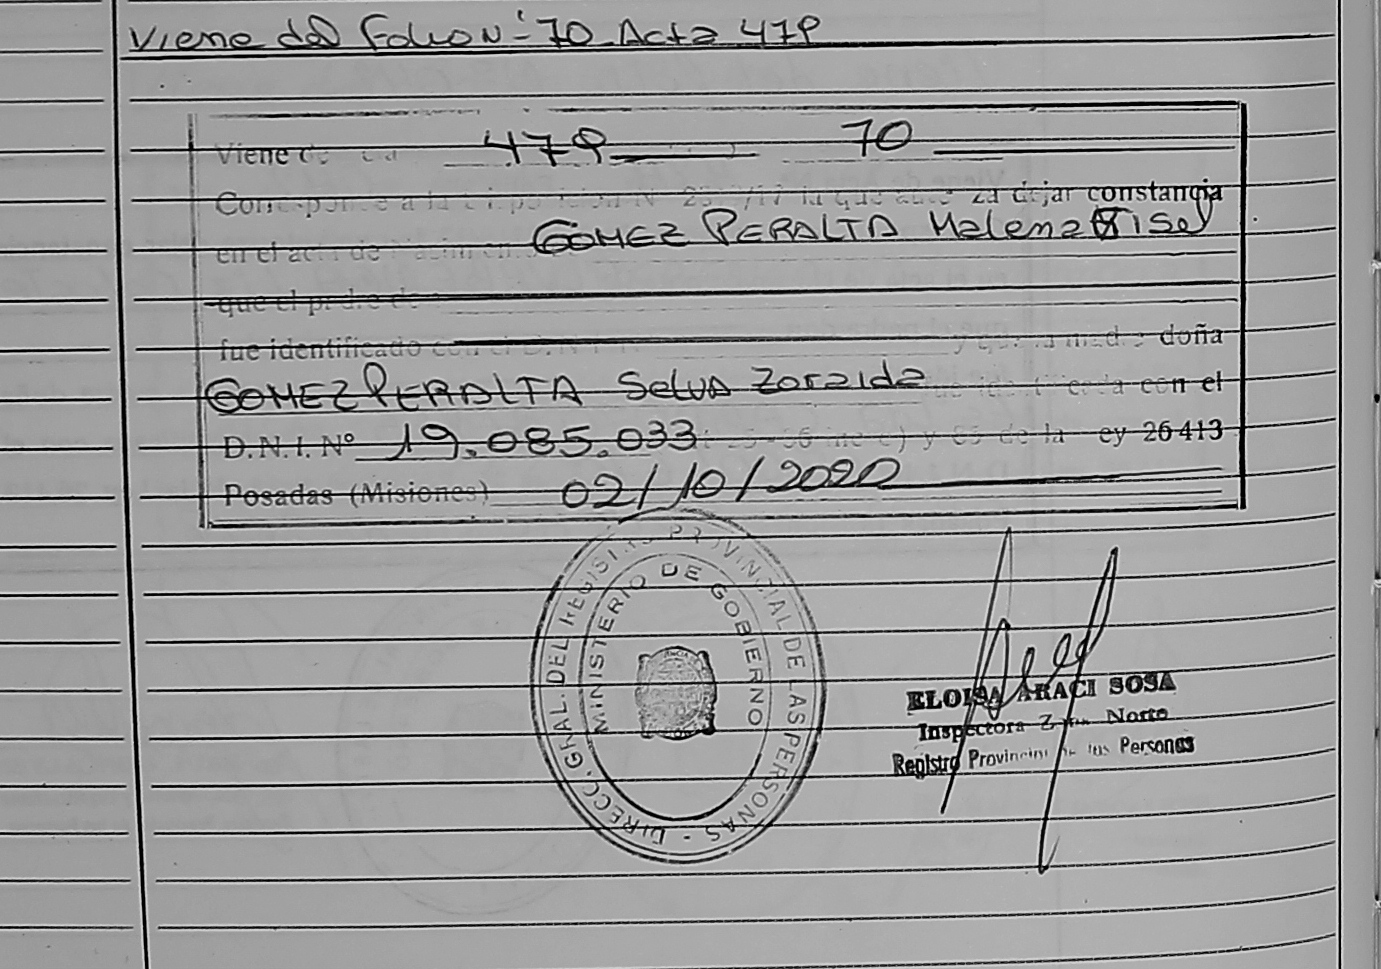 Viene del Folio N-° 70 Acta 479
Viene de 479 70
Corresponde a la Disposición N° /17 la que dejar constancia
en el acta de nacimien GOMEZ PERALTA Malena Gisel
que el padre de
fue identificado con el D.N.I. y que la madre doña
GOMEZ PERALTA Selva Zoraida con el
D.N.I. Nº 19.085.033 y de la ey 26413
Posadas (Misiones) 02/10/2020
DIRECC. GRAL. DEL REGISTRO PROVINCIAL DE LAS PERSONAS -
MINISTERIO DE GOBIERNO
ELOISA ARACI SOSA
Inspectora Zona Norte
Registro Provincial de las Personas